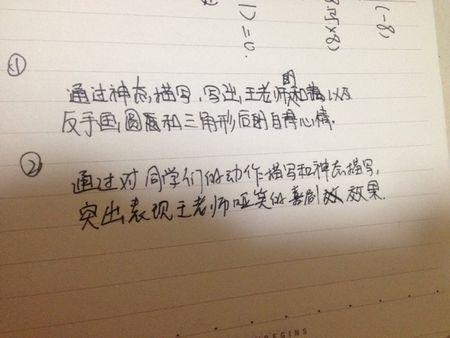 (-8)
8)
1) = 0.
①
通过神态描写,写出王老师的和蔼以及
反手画圆和三角形后的自得心情.
②
通过对同学们的动作描写和神态描写,
突出表现王老师哑笑的喜剧效果.
BEGINS